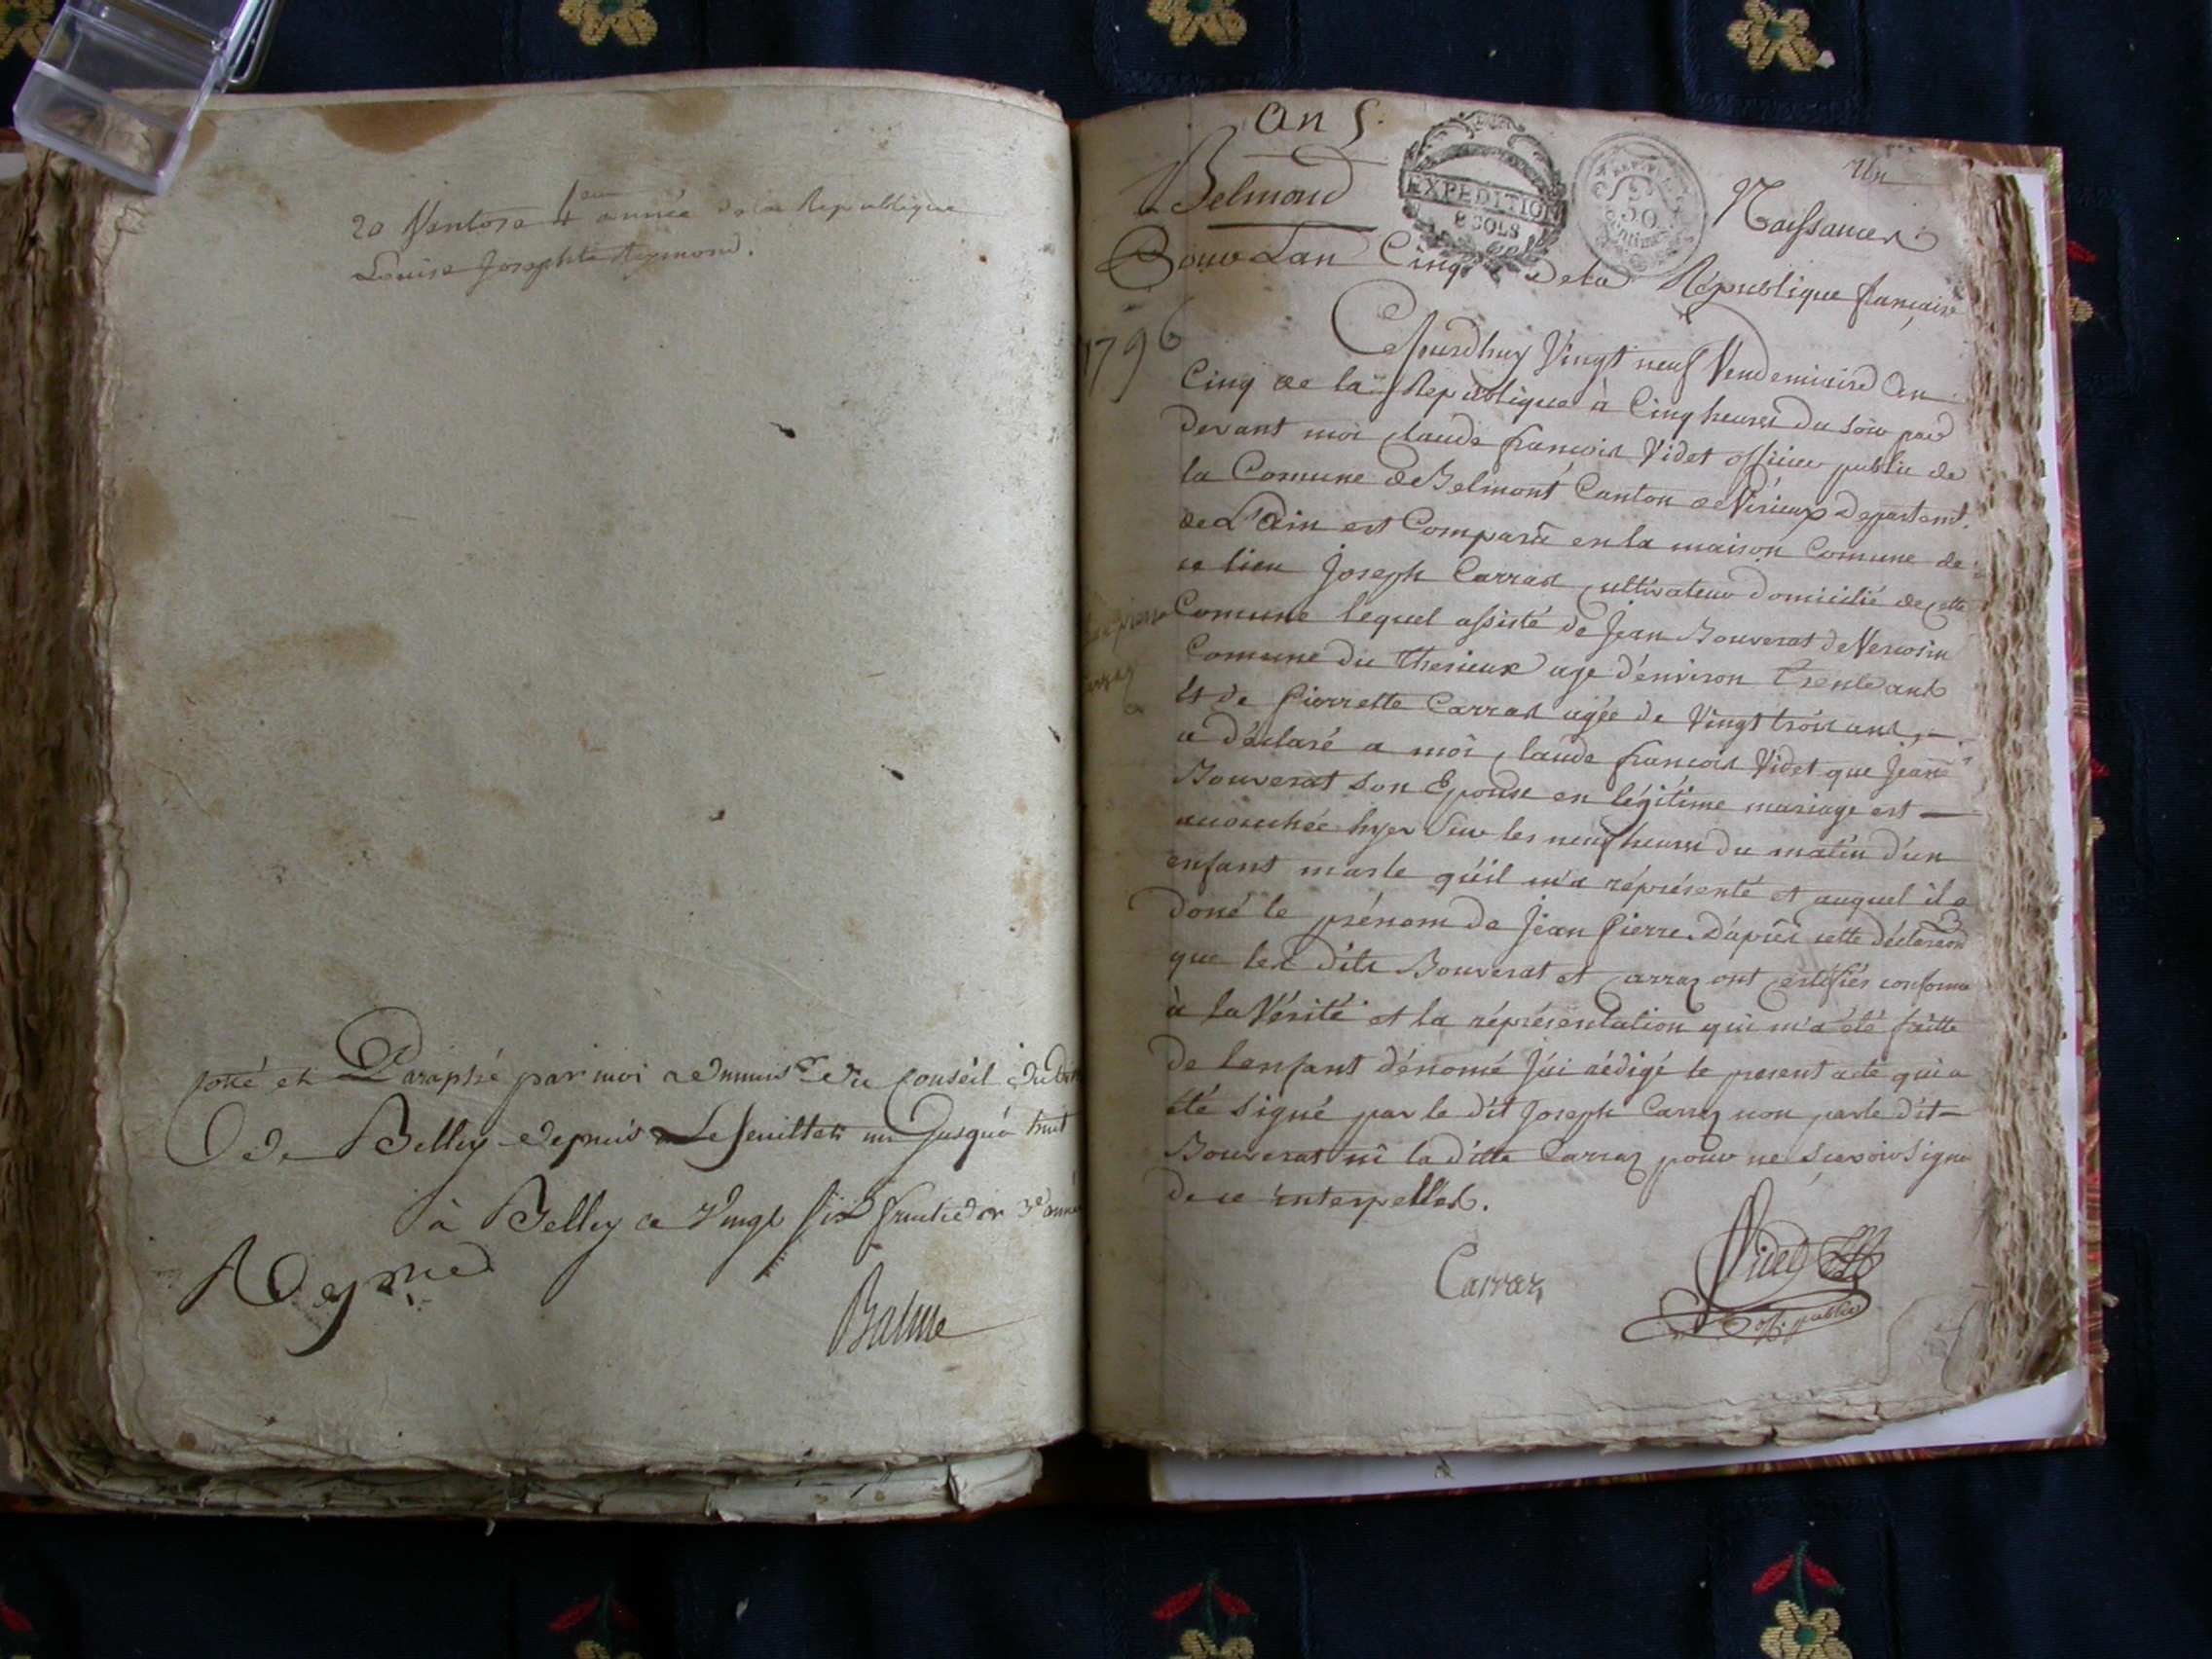 20 Ventose 4 année de la Republique
Louise Josephte Reymond.
Cotté et Paraphé par moi adminisr du Conseil du
de Belley depuis Le feuillet un Jusqu'à huit
à Belley ce vingt six fructidor 3e année
Balme
an 5.
Un
Belmond
EXPEDITION
8 SOLS
50
centimes
Naissances
Pour Lan Cinq de la République francaise
1796
Cejourdhuy Vingt neuf Vendemiaire an
Cinq de la Republique à Cinq heures du soir par
devant moi Claude francois Videt officier public de
la Comune de Belmont Canton de Virieux Departemt.
de L'Ain est Comparu en la maison Comune de
ce lieu Joseph Carraz Cultivateur domicilié de cette
Comune lequel assisté de Jean Bouverat de Vercosin
Comune du Thesieux age d'environ Trente ans
Et de Pierrette Carraz agée de Vingt trois ans,
a déclaré a moi Claude francois Videt que Jeane
Bouverat son Epouse en légitime mariage est
accouchée hyer Sur les neuf heures du matin d'un
enfant masle qu'il m'a réprésenté et auquel il a
doné le prénom de Jean Pierre. D'après cette déclaraon
que les dits Bouverat et Carraz ont certifiés conforme
à la Vérité et la réprésentation qui m'a été faitte
de lenfant dénomé J'ai rédigé le present acte qui a
été signé par le dit Joseph Carraz non par le dit
Bouverat ni la ditte Carraz pour ne Scavoir signer
de ce interpellés.
Carraz
Videt
off. public